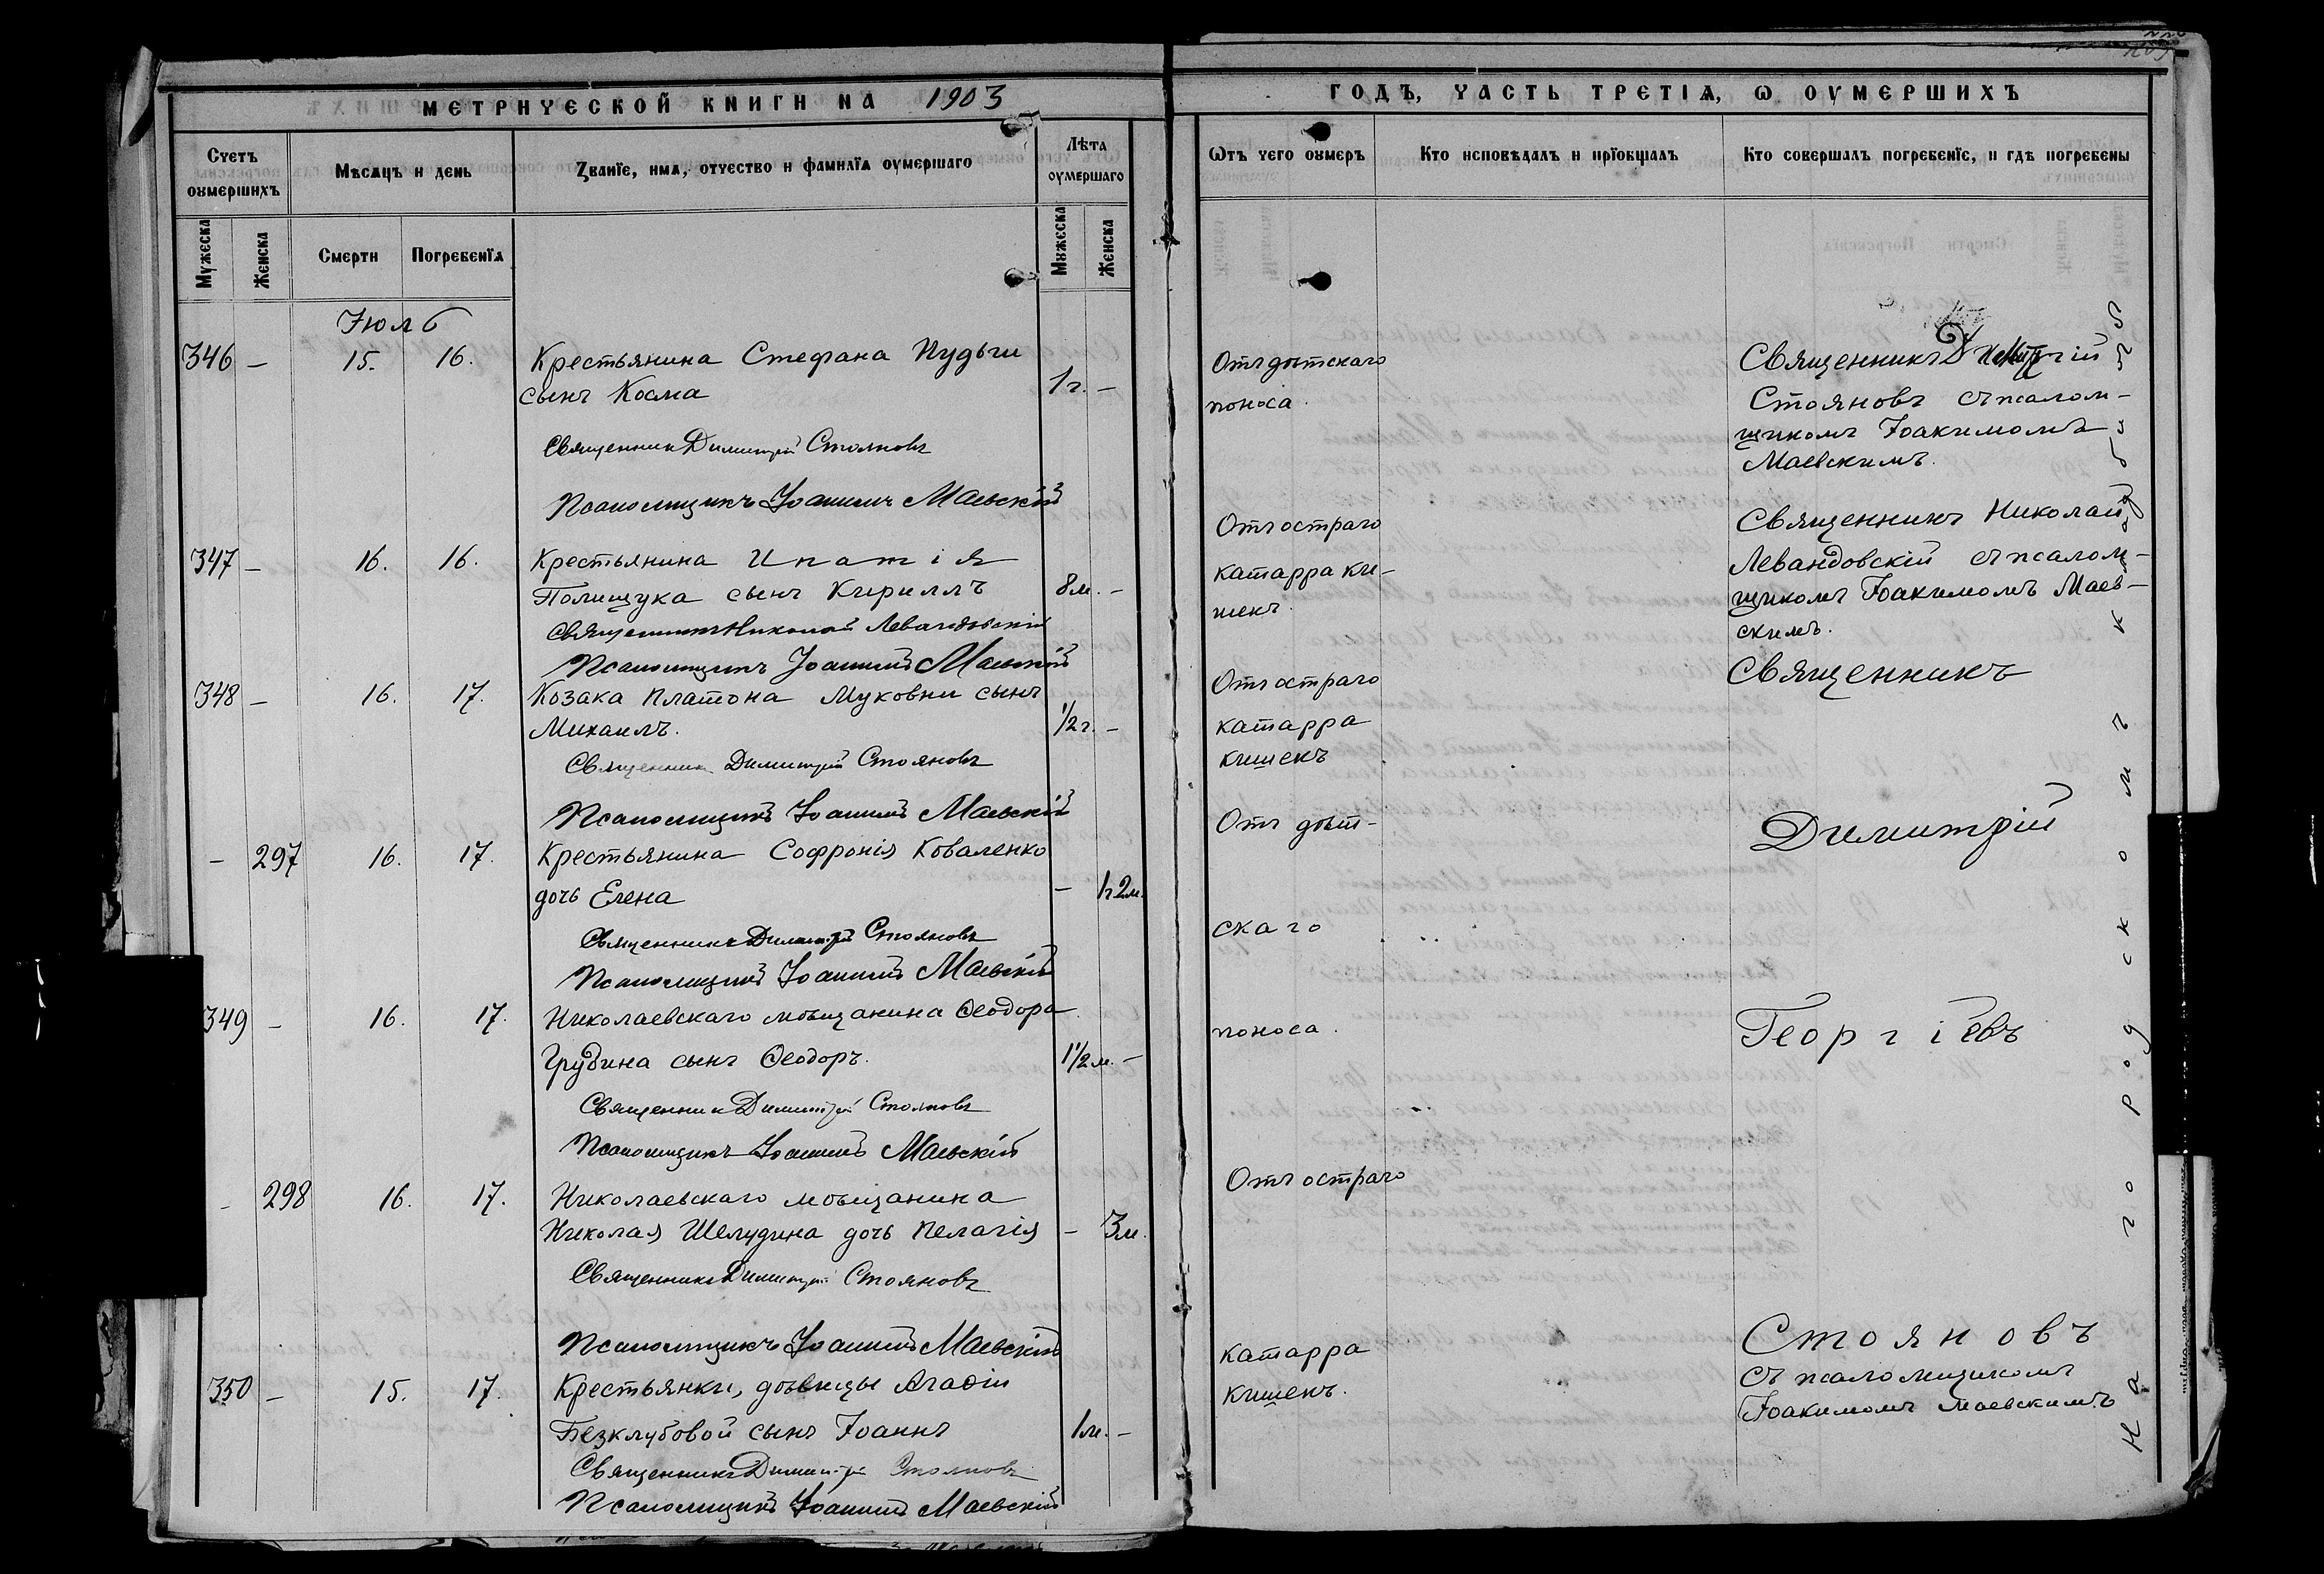 МЕТРИЧЕСКОЙ КНИГИ НА 1903
Счетъ оумершихъ
Мѣсяцъ и день
Званїе, имя, отчество и фамилїя оумершаго
Лѣта оумершаго
Мужеска
Женска
Смерти
Погребенїя
Мужеска
Женска
Іюль
346 – 15. 16. Крестьянина Стефана Пудьги
сынъ Косма 1г. –
Священникъ Димитрій Стояновъ
Псаломщикъ Іоакимъ Маевскій
347 – 16. 16. Крестьянина Ипатія
Полищука сынъ Кириллъ 8м. –
Священникъ Николай Левандовскій
Псаломщикъ Іоакимъ Маевскій
348 – 16. 17. Козака Платона Муковни сынъ
Михаилъ. 1/2г. –
Священникъ Димитрій Стояновъ
Псаломщикъ Іоакимъ Маевскій
– 297 16. 17. Крестьянина Софронія Коваленко
дочь Елена – 1г2м.
Священникъ Димитрій Стояновъ
Псаломщикъ Іоакимъ Маевскій
349 – 16. 17. Николаевскаго мѣщанина Ѳеодора
Грудина сынъ Ѳеодоръ. 1 1/2м. –
Священникъ Димитрій Стояновъ
Псаломщикъ Іоакимъ Маевскій
– 298 16. 17. Николаевскаго мѣщанина
Николая Шелудина дочь Пелагія – 3м.
Священникъ Димитрій Стояновъ
Псаломщикъ Іоакимъ Маевскій
350 – 15. 17. Крестьянки, дѣвицы Агафіи
Безклубовой сынъ Іоаннъ 1м. –
Священникъ Димитрій Стояновъ
Псаломщикъ Іоакимъ Маевскій
ГОДЪ, ЧАСТЬ ТРЕТІЯ, Ѡ ОУМЕРШИХЪ
Ѿтъ чего оумеръ
Кто исповѣдалъ и прїобщалъ
Кто совершалъ погребенїе, и гдѣ погребены
Отъ дѣтскаго
поноса.
Отъ остраго
катарра ки-
шекъ.
Отъ остраго
катарра
кишекъ
Отъ дѣт-
скаго
поноса.
Отъ остраго
катарра
кишекъ.
Священникъ Димитрій
Стояновъ съ псалом-
щикомъ Іоакимомъ
Маевскимъ.
Священникъ Николай
Левандовскій съ псалом-
щикомъ Іоакимомъ Маев-
скимъ.
Священникъ
Димитрій
Георгіевъ
Стояновъ
съ псаломщикомъ
Іоакимомъ Маевскимъ
На городскомъ кладбищѣ